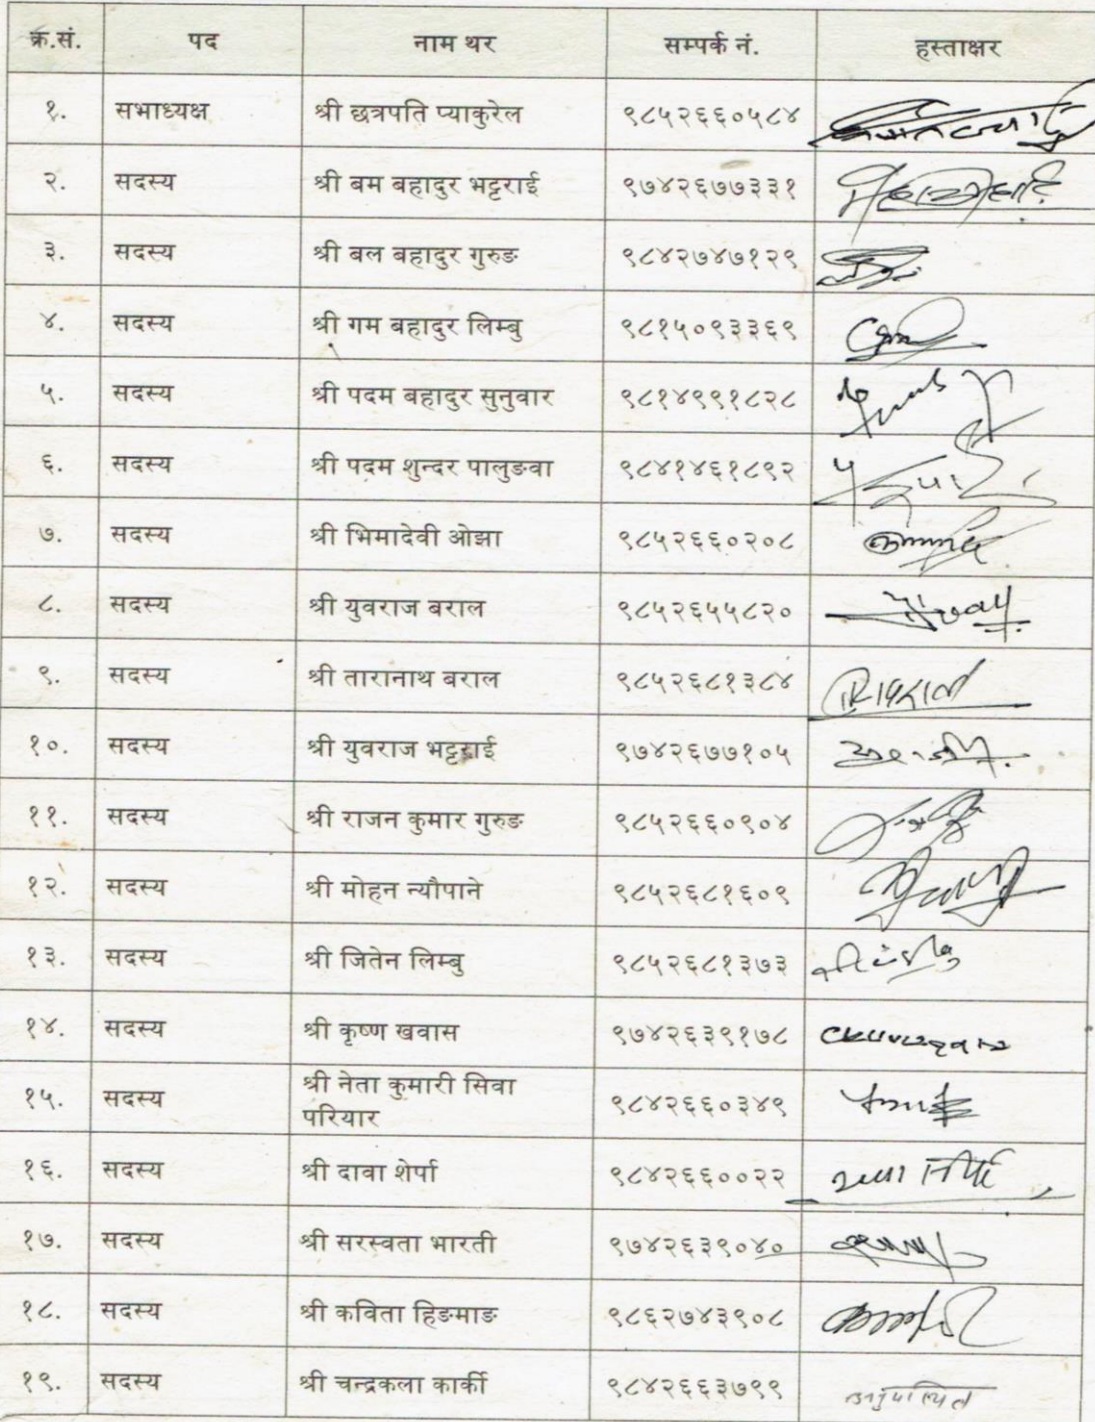 क्र.सं. पद नाम थर सम्पर्क नं. हस्ताक्षर
१. सभाध्यक्ष श्री छत्रपति प्याकुरेल ९८५२६६०५८४
२. सदस्य श्री बम बहादुर भट्टराई ९७४२६७७३३१
३. सदस्य श्री बल बहादुर गुरुङ ९८४२७४७१२९
४. सदस्य श्री गम बहादुर लिम्बु ९८१५०९३३६९
५. सदस्य श्री पदम बहादुर सुनुवार ९८१४९९१८२८
६. सदस्य श्री पदम शुन्दर पालुङवा ९८४१४६१८९२
७. सदस्य श्री भिमादेवी ओझा ९८५२६६०२०८
८. सदस्य श्री युवराज बराल ९८५२६५५८२०
९. सदस्य श्री तारानाथ बराल ९८५२६८१३८४
१०. सदस्य श्री युवराज भट्टराई ९७४२६७७१०५
११. सदस्य श्री राजन कुमार गुरुङ ९८५२६६०९०४
१२. सदस्य श्री मोहन न्यौपाने ९८५२६८१६०९
१३. सदस्य श्री जितेन लिम्बु ९८५२६८१३७३
१४. सदस्य श्री कृष्ण खवास ९७४२६३९१७८
१५. सदस्य श्री नेता कुमारी सिवा
परियार ९८४२६६०३४९
१६. सदस्य श्री दावा शेर्पा ९८४२६६००२२
१७. सदस्य श्री सरस्वता भारती ९७४२६३९०४०
१८. सदस्य श्री कविता हिङमाङ ९८६२७४३९०८
१९. सदस्य श्री चन्द्रकला कार्की ९८४२६६३७९९ अनुपस्थित